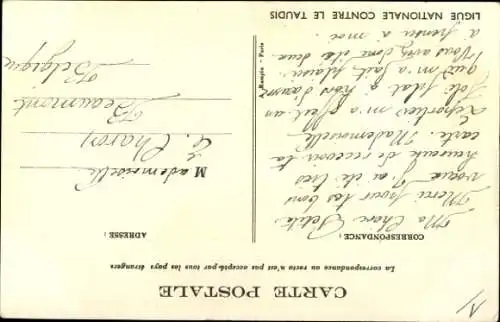 CARTE POSTALE
La correspondance au recto n'est pas acceptée par tous les pays étrangers
CORRESPONDANCE :
Ma Chère Petite
Merci pour tes bons
J'ai été très
heureux de recevoir ta
carte. Mademoiselle
m'a fait un
joli
qui m'a fait plaisir.
Vous avez donc été deux
à penser à moi.
ADRESSE :
Mademoiselle
E. Charon
Beaumont
Belgique
A. Rampin - Paris
LIGUE NATIONALE CONTRE LE TAUDIS